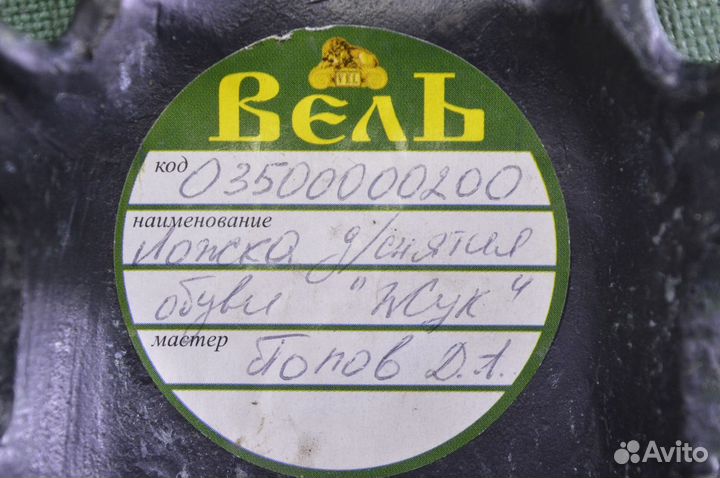 VEL
ВелЬ
код 03500000200
наименование
Ложка д/снятия
обуви "Жук"
мастер Попов Д.А.
Avito